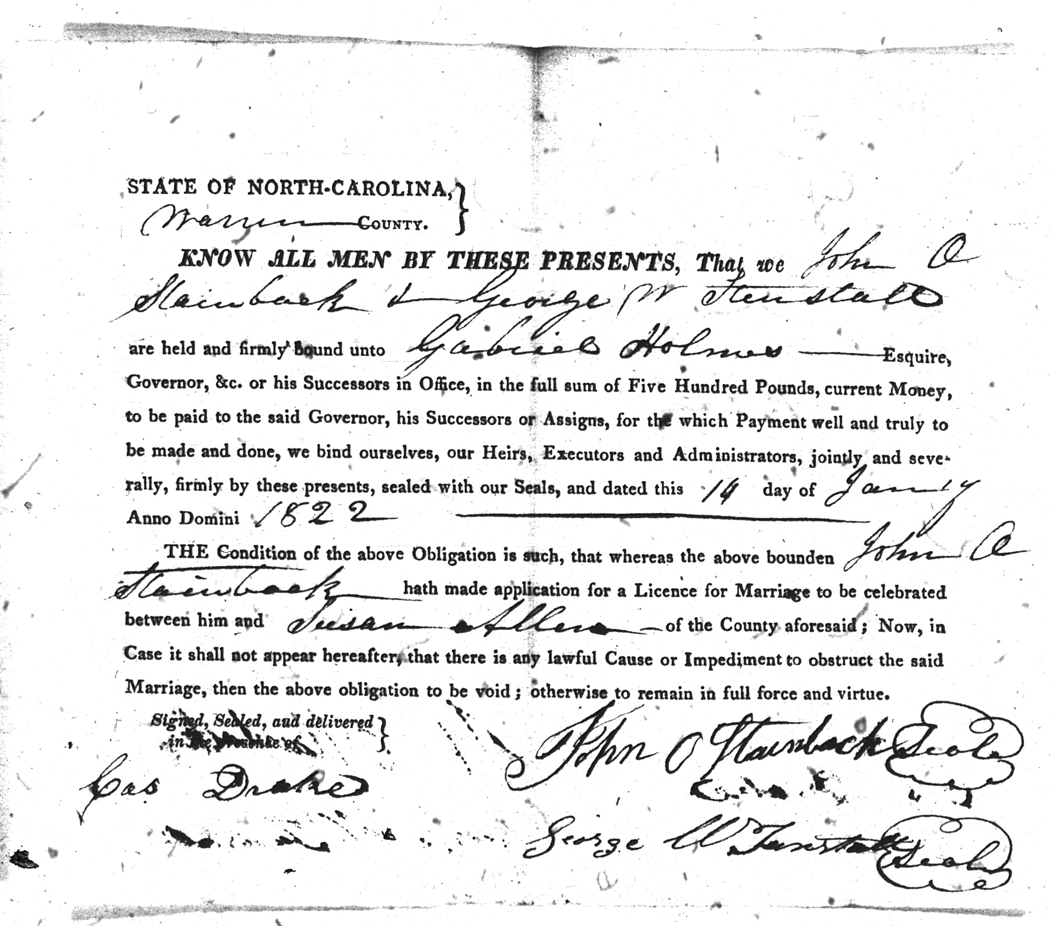 STATE OF NORTH-CAROLINA,
Warren COUNTY.
KNOW ALL MEN BY THESE PRESENTS, That we John O
Stainback & George W Tunstall
are held and firmly bound unto Gabriel Holmes Esquire,
Governor, &c. or his Successors in Office, in the full sum of Five Hundred Pounds, current Money,
to be paid to the said Governor, his Successors or Assigns, for the which Payment well and truly to
be made and done, we bind ourselves, our Heirs, Executors and Administrators, jointly and seve-
rally, firmly by these presents, sealed with our Seals, and dated this day of Jany
Anno Domini 1822
THE Condition of the above Obligation is such, that whereas the above bounden John O
Stainback hath made application for a Licence for Marriage to be celebrated
between him and Susan Allen of the County aforesaid; Now, in
Case it shall not appear hereafter, that there is any lawful Cause or Impediment to obstruct the said
Marriage, then the above obligation to be void; otherwise to remain in full force and virtue.
Signed, Sealed, and delivered
in the presence of
Cas Drake
John O Stainback Seal
George W Tunstall Seal